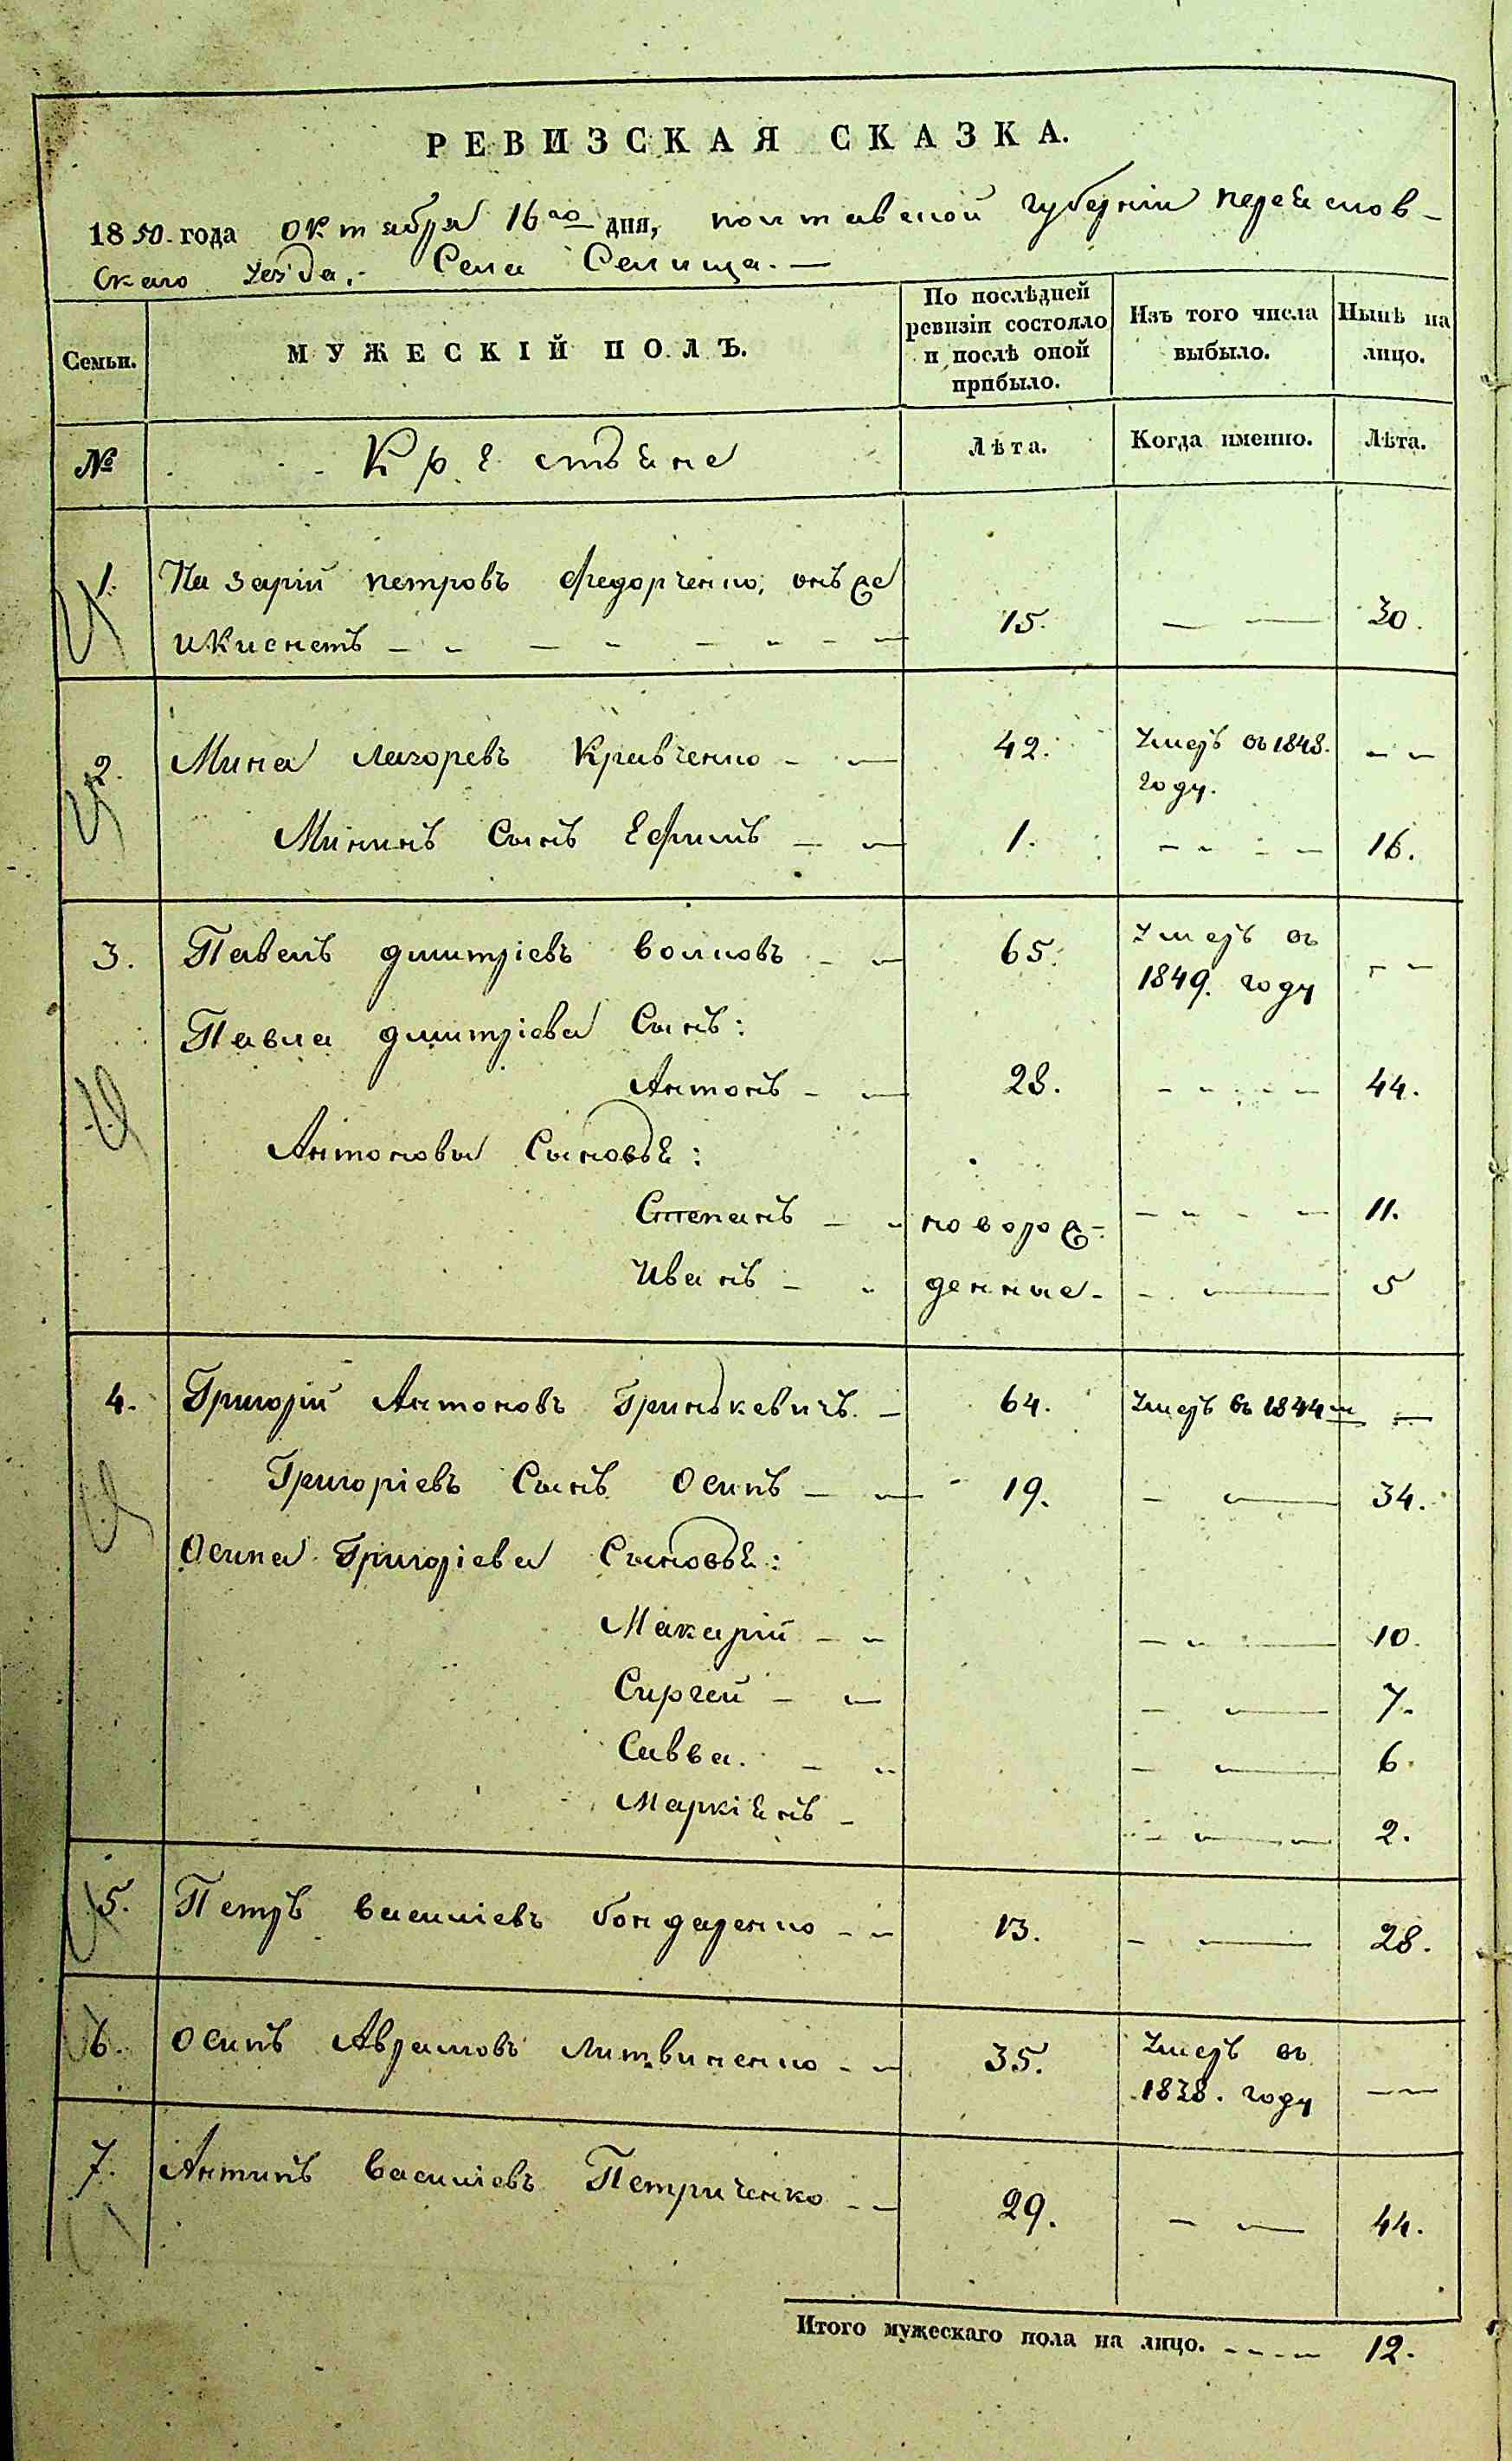 РЕВИЗСКАЯ СКАЗКА.
1850. года октября 16го дня, полтавской губерніи переяслов-
скаго уезда, Села Селища. —
Семьи.
МУЖЕСКІЙ ПОЛЪ.
По послѣдней ревизіи состояло и послѣ оной прибыло.
Изъ того числа выбыло.
Нынѣ на лицо.
№
Крестьяне
Лѣта.
Когда именно.
Лѣта.
1. Назарій петровъ Федорченко, онъ же
Икиснетъ — 15. — 30.
2. Мина лазоревъ Кравченко — 42. Умеръ въ 1848. году. —
Мининъ Сынъ Ефимъ — 1. — 16.
3. Павелъ дмитріевъ волковъ — 65. Умеръ въ 1849. году —
Павла дмитріева Сынъ:
Антонъ — 28. — 44.
Антоновы Сыновья:
Степанъ — новорож- — 11.
Иванъ — денные — 5
4. Григорій Антоновъ Гринькевичъ. — 64. Умеръ въ 1844м —
Григоріевъ Сынъ Осипъ — 19. — 34.
Осипа Григоріева Сыновья:
Макарій — 10.
Сиргей — 7.
Савва. — 6.
Маркіянъ — 2.
5. Петръ василіевъ бондаренко — 13. — 28.
6. Осипъ Аврамовъ литвиненко — 35. Умеръ въ 1838. году —
7. Антипъ василіевъ Петриченко — 29. — 44.
Итого мужескаго пола на лицо. — 12.